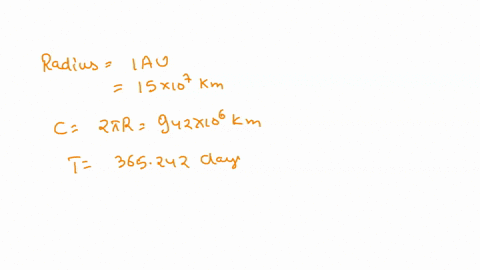 Radius = 1AU
= 15×10⁷ Km
C = 2πR = 942×10⁶ Km
T = 365.242 days